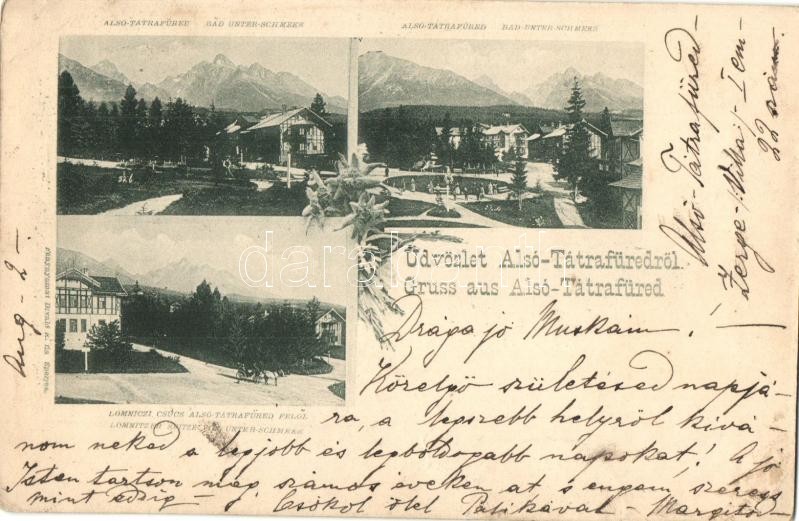 ALSÓ-TÁTRAFÜRED BAD UNTER-SCHMEKS
ALSÓ-TÁTRAFÜRED BAD-UNTER-SCHMEKS
Üdvözlet Alsó-Tátrafüredről.
Gruss aus Alsó-Tátrafüred
LOMNICZI CSÚCS ALSÓ-TÁTRAFÜRED FELŐL
LOMNITZER SPITZE UNTER-SCHMEKS
Divald
Eperjes
Aug - 2 -
Alsó-Tátrafüred -
Zerge-
22 szám
Drága jó Muskám! -
Közelgő születésed napjá-
ra, a legszebb helyről kívá-
nom neked a legjobb és legboldogabb napokat! A jó
Isten tartson meg számos éveken át s engem szeress
mint eddig - Csókol ölel Palikával - Margitod -